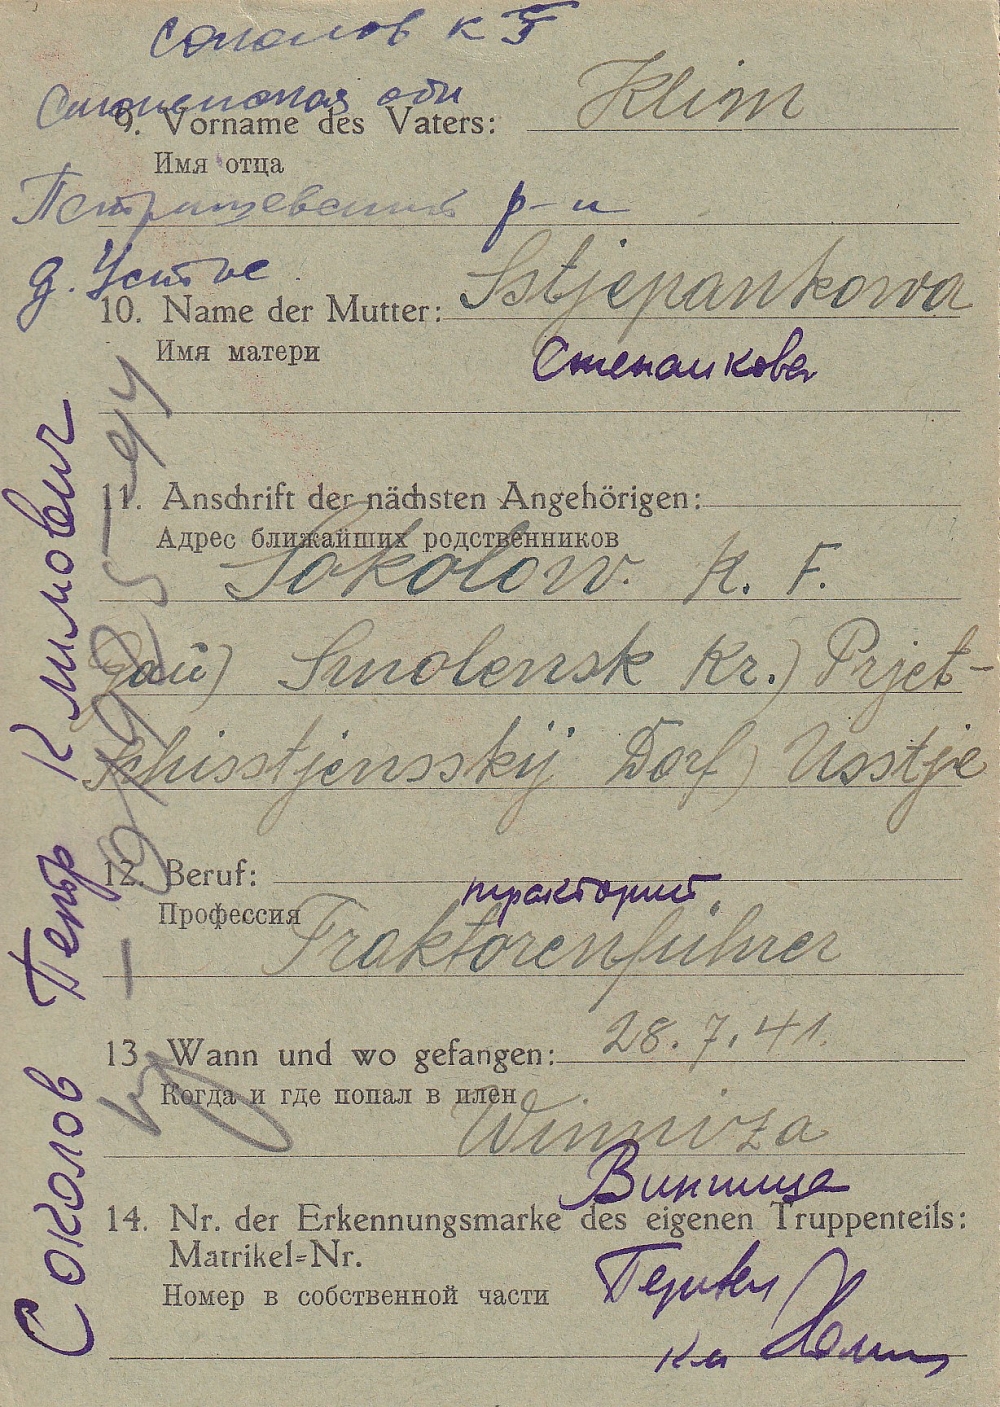 Соколов К Г
Смоленская обл
9. Vorname des Vaters: Klim
Имя отца
р-н
д. Устье
10. Name der Mutter: Sstjepankowa
Имя матери
Степанкова
11. Anschrift der nächsten Angehörigen:
Адрес ближайших родственников
Sokolow. K. F.
Smolensk Kr.) Prjet-
schisstjensskij Dorf) Usstje
12. Beruf:
тракторист
Профессия
Traktorenführer
13. Wann und wo gefangen: 28.7.41.
Когда и где попал в плен
Winniza
Винница
14. Nr. der Erkennungsmarke des eigenen Truppenteils:
Matrikel-Nr.
Номер в собственной части
Соколов Петр Климович